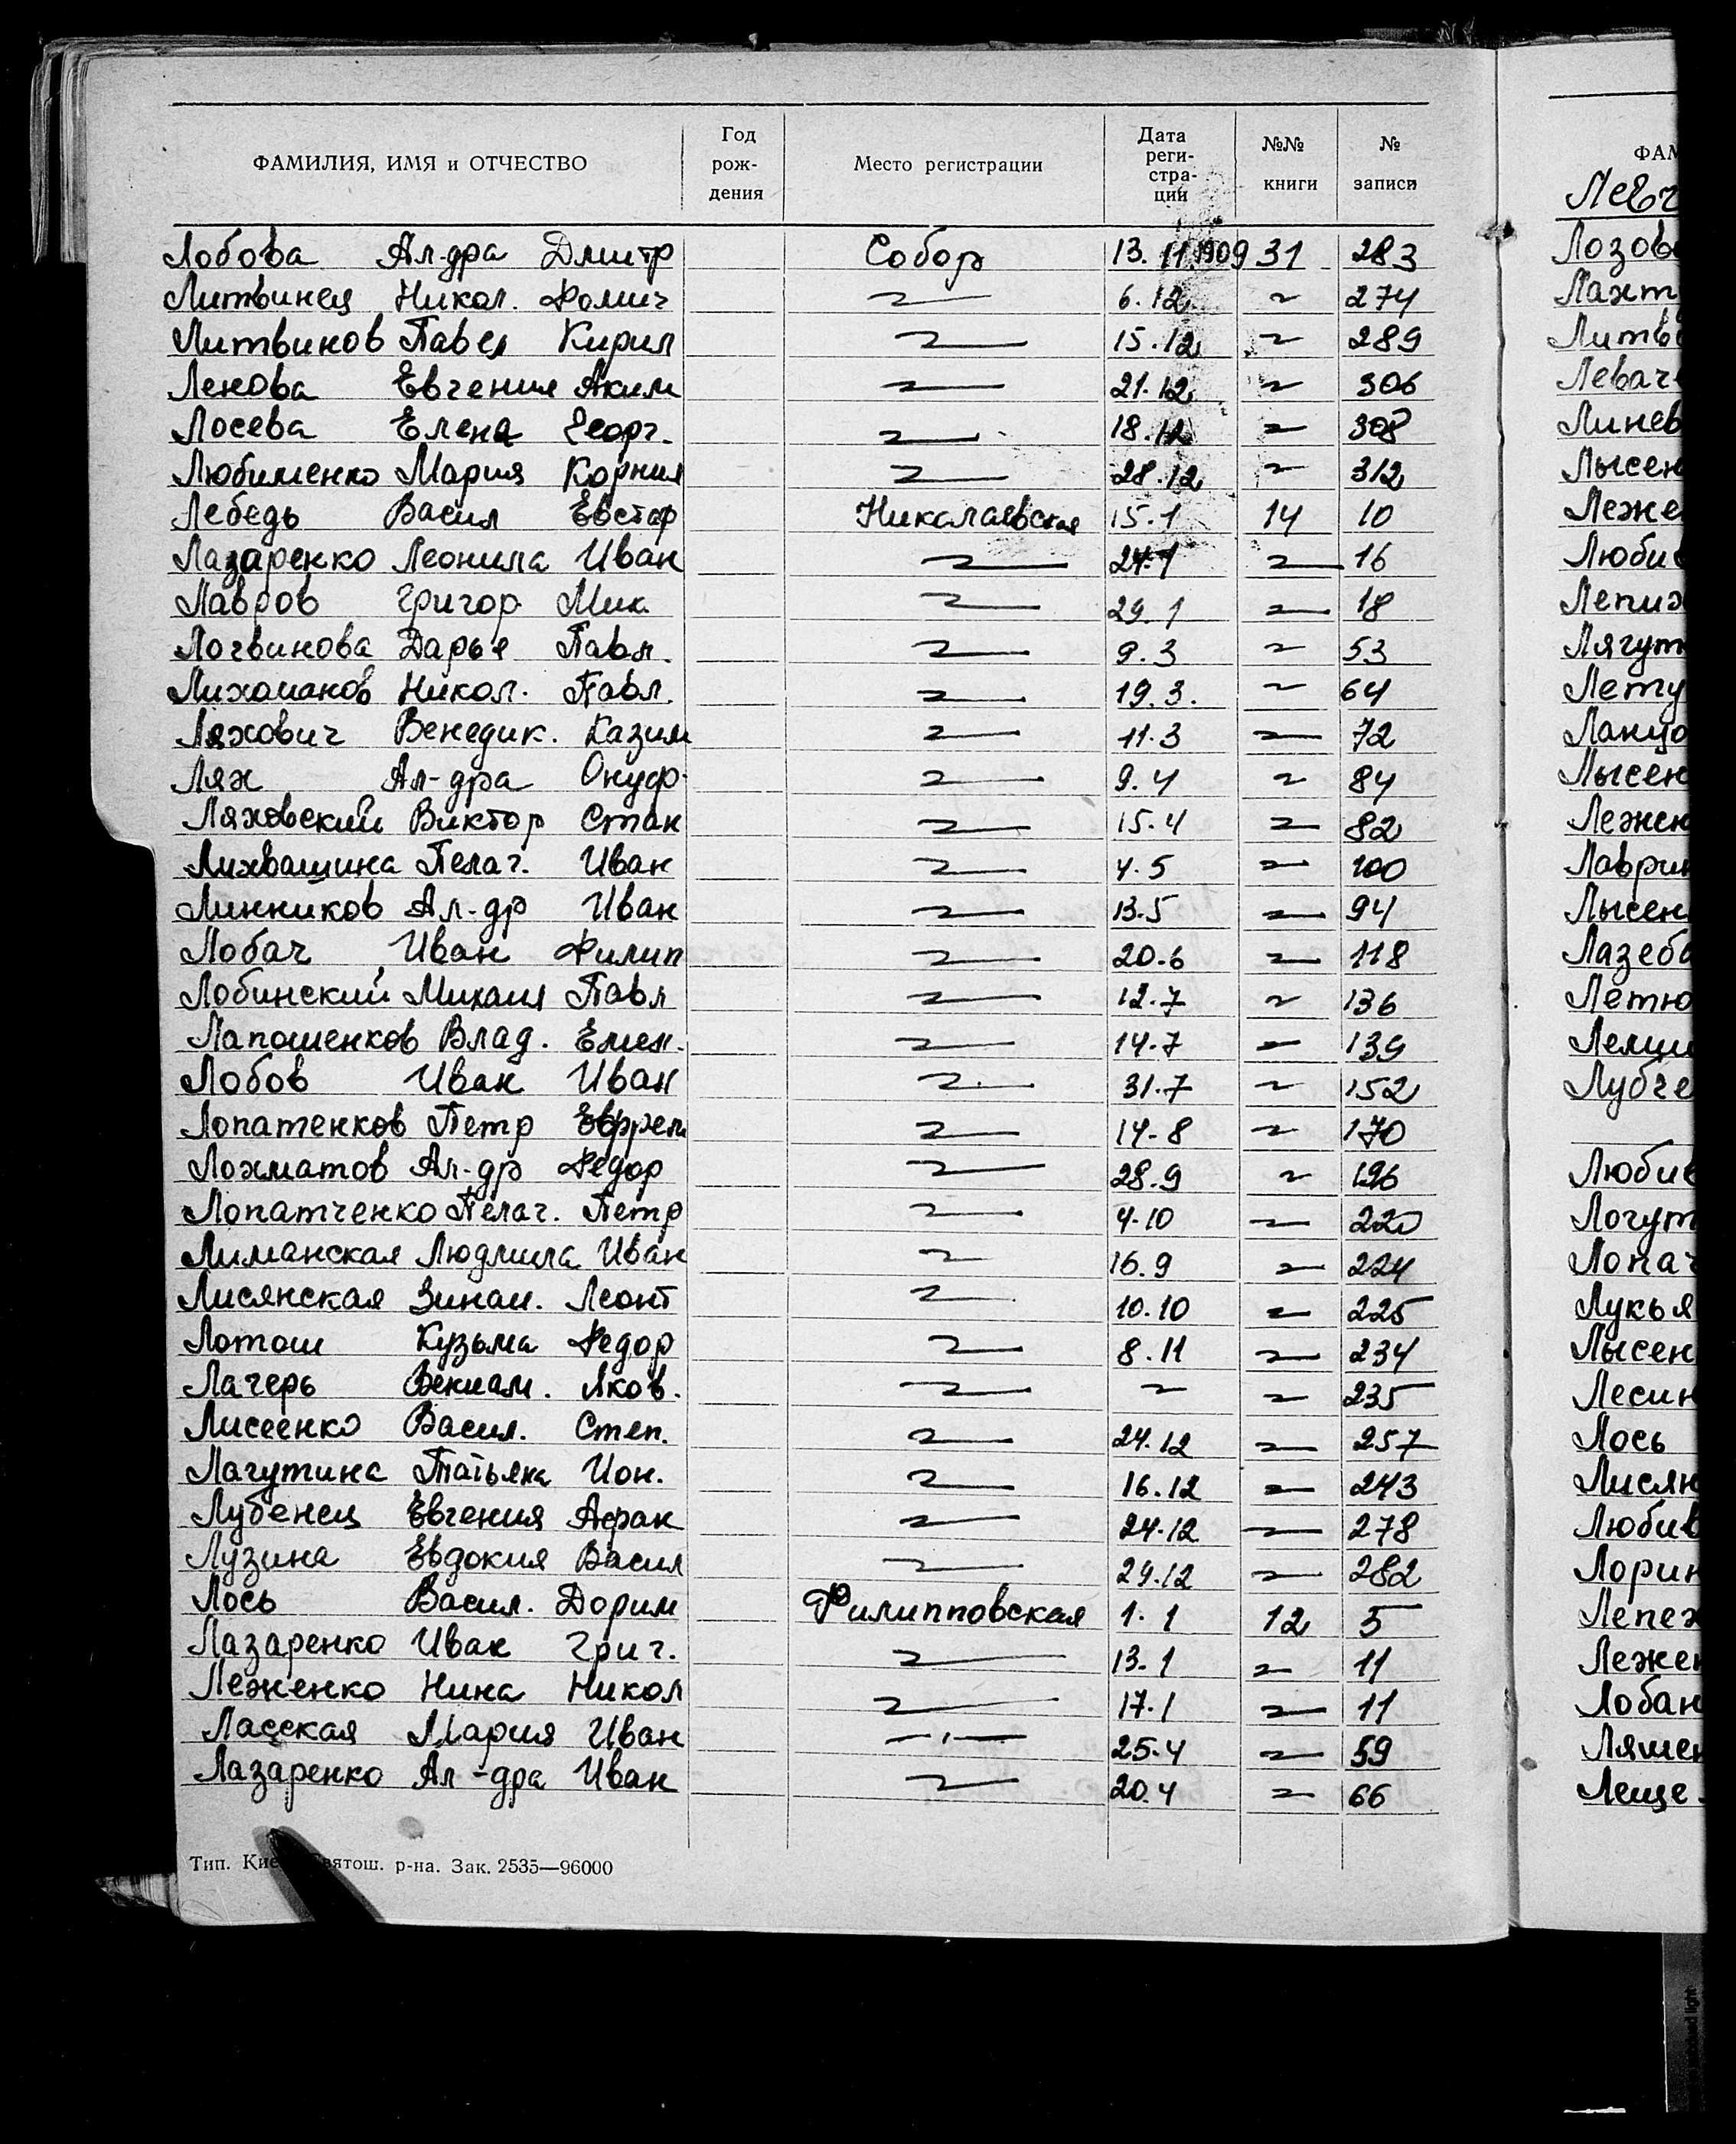 ФАМИЛИЯ, ИМЯ и ОТЧЕСТВО Год рож- дения Место регистрации Дата реги- стра- ции №№ книги № записи
Лобова Ал-дра Дмитр Собор 13.11.1909 31 283
Литвинец Никол. Фомич 〃 6.12 〃 274
Литвинов Павел Кирил 〃 15.12 〃 289
Ленова Евгения Аким 〃 21.12 〃 306
Лосева Елена Георг. 〃 18.12 〃 308
Любименко Мария Корнил 〃 28.12 〃 312
Лебедь Васил Евстаф Николаевская 15.1 14 10
Лазаренко Леонила Иван 〃 24.1 〃 16
Лавров Григор Мих. 〃 29.1 〃 18
Логвинова Дарья Павл. 〃 9.3 〃 53
Лихоманов Никол. Павл. 〃 19.3. 〃 64
Ляхович Венедик. Казим 〃 11.3 〃 72
Лях Ал-дра Онуф. 〃 9.4 〃 84
Ляховский Виктор Стан 〃 15.4 〃 82
Лихвашина Пелаг. Иван 〃 4.5 〃 100
Линников Ал-др Иван 〃 13.5 〃 94
Лобач Иван Филип 〃 20.6 〃 118
Лобинский Михаил Павл 〃 12.7 〃 136
Лапошенков Влад. Емел. 〃 14.7 〃 139
Лобов Иван Иван 〃 31.7 〃 152
Лопатенков Петр Ефрем 〃 14-8 〃 170
Лохматов Ал-др Федор 〃 28.9 〃 196
Лопатченко Пелаг. Петр 〃 4.10 〃 220
Лиманская Людмила Иван 〃 16.9 〃 224
Лисянская Зинаи. Леонт 〃 10.10 〃 225
Лотош Кузьма Федор 〃 8.11 〃 234
Лагерь Вениам. Яков. 〃 〃 〃 235
Лисеенко Васил. Степ. 〃 24.12 〃 257
Лагутина Татьяна Ион. 〃 16.12 〃 243
Лубенец Евгения Афан 〃 24.12 〃 278
Лузина Евдокия Васил 〃 29.12 〃 282
Лось Васил. Дорим Филипповская 1.1 12 5
Лазаренко Иван Григ. 〃 13.1 〃 11
Леженко Нина Никол 〃 17.1 〃 11
Ласская Мария Иван 〃 25.4 〃 59
Лазаренко Ал-дра Иван 〃 20.4 〃 66
Тип. р-на. Зак. 2535—96000
ФАМ
Левч
Лозов
Лахт
Литв
Леваче
Линев
Лысен
Леже
Люби
Лепих
Лягут
Лету
Ланцо
Лысен
Лежен
Лаврин
Лысен
Лазеб
Летю
Лемци
Лубче
Любив
Логут
Лопач
Лукья
Лысен
Лесин
Лось
Лисян
Любив
Лорин
Лепех
Лежен
Лобан
Ляшен
Леще